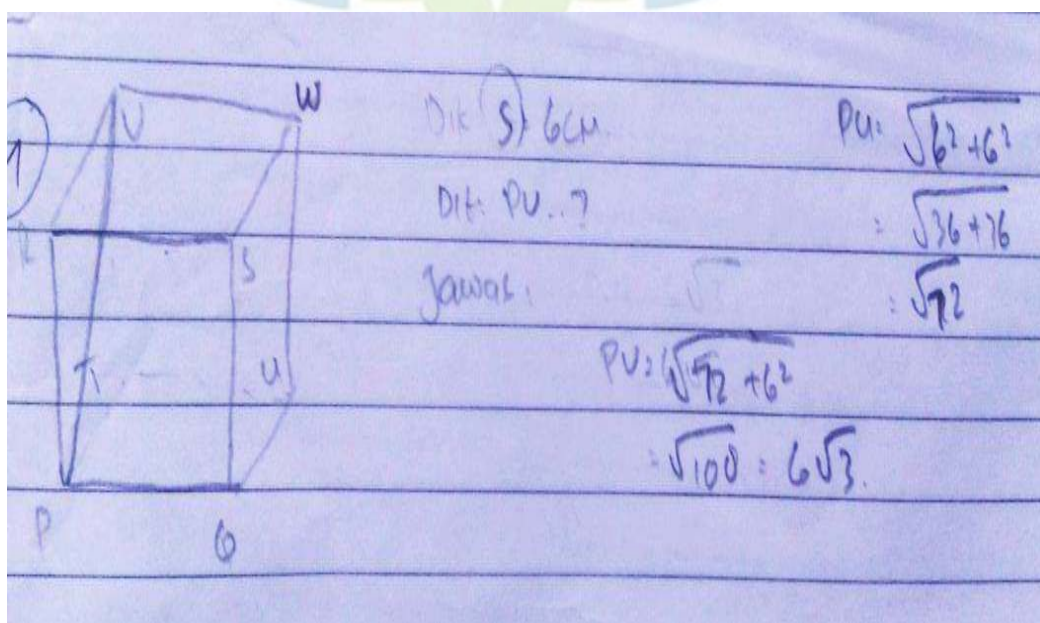 1
V W
R S
T U
P Q
Dik S: 6cm
Dit: PV..?
Jawab:
PU: √6²+6²
: √36+36
: √72
PV: √√72 +6²
: √108 : 6√3.